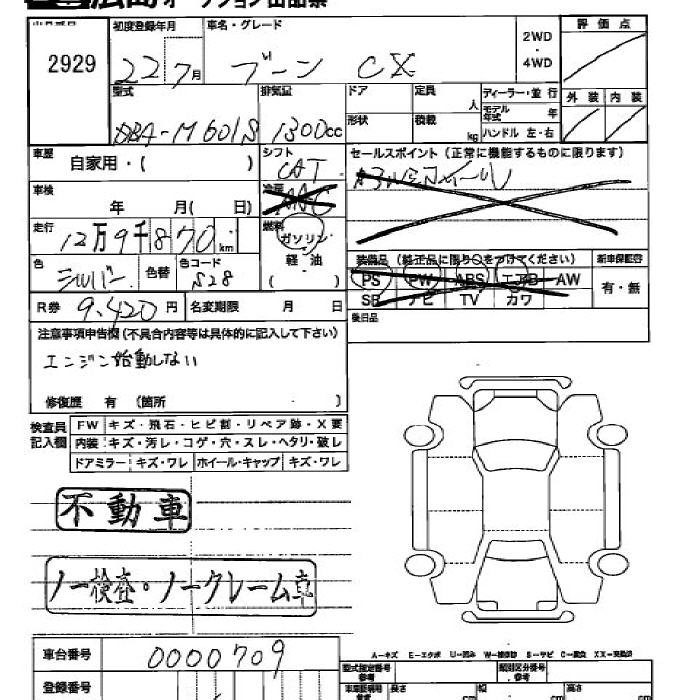 広島オークション出品票
2929
初度登録年月 車名・グレード
22 7月 ブーン CX
2WD・4WD
評価点
型式 排気量 ドア 定員 人 ディーラー・並行
外装 内装
DBA-M601S 1300cc 形状 積載 kg モデル年式 年
ハンドル 左・右
車歴 自家用・( )
シフト CAT
セールスポイント(正常に機能するものに限ります)
車検 年 月( 日)
走行 12万9千870km
燃料 ガソリン・軽油( )
装備品(純正品に限り○をつけてください) 新車保証書
PS PW ABS エアB AW 有・無
SB ナビ TV カワ
色 シルバー 色替 色コード S28
後日品
R券 9,420円 名変期限 月 日
注意事項申告欄(不具合内容等は具体的に記入して下さい)
エンジン始動しない
修復歴 有(箇所 )
検査員記入欄
FW キズ・飛石・ヒビ割・リペア跡・X要
内装 キズ・汚レ・コゲ・穴・スレ・ヘタリ・破レ
ドアミラー キズ・ワレ ホイール・キャップ キズ・ワレ
不動車
ノー検査・ノークレーム車
車台番号 0000709
型式指定番号 参考 類別区分番号 参考
登録番号
長さ cm 幅 cm 高さ cm